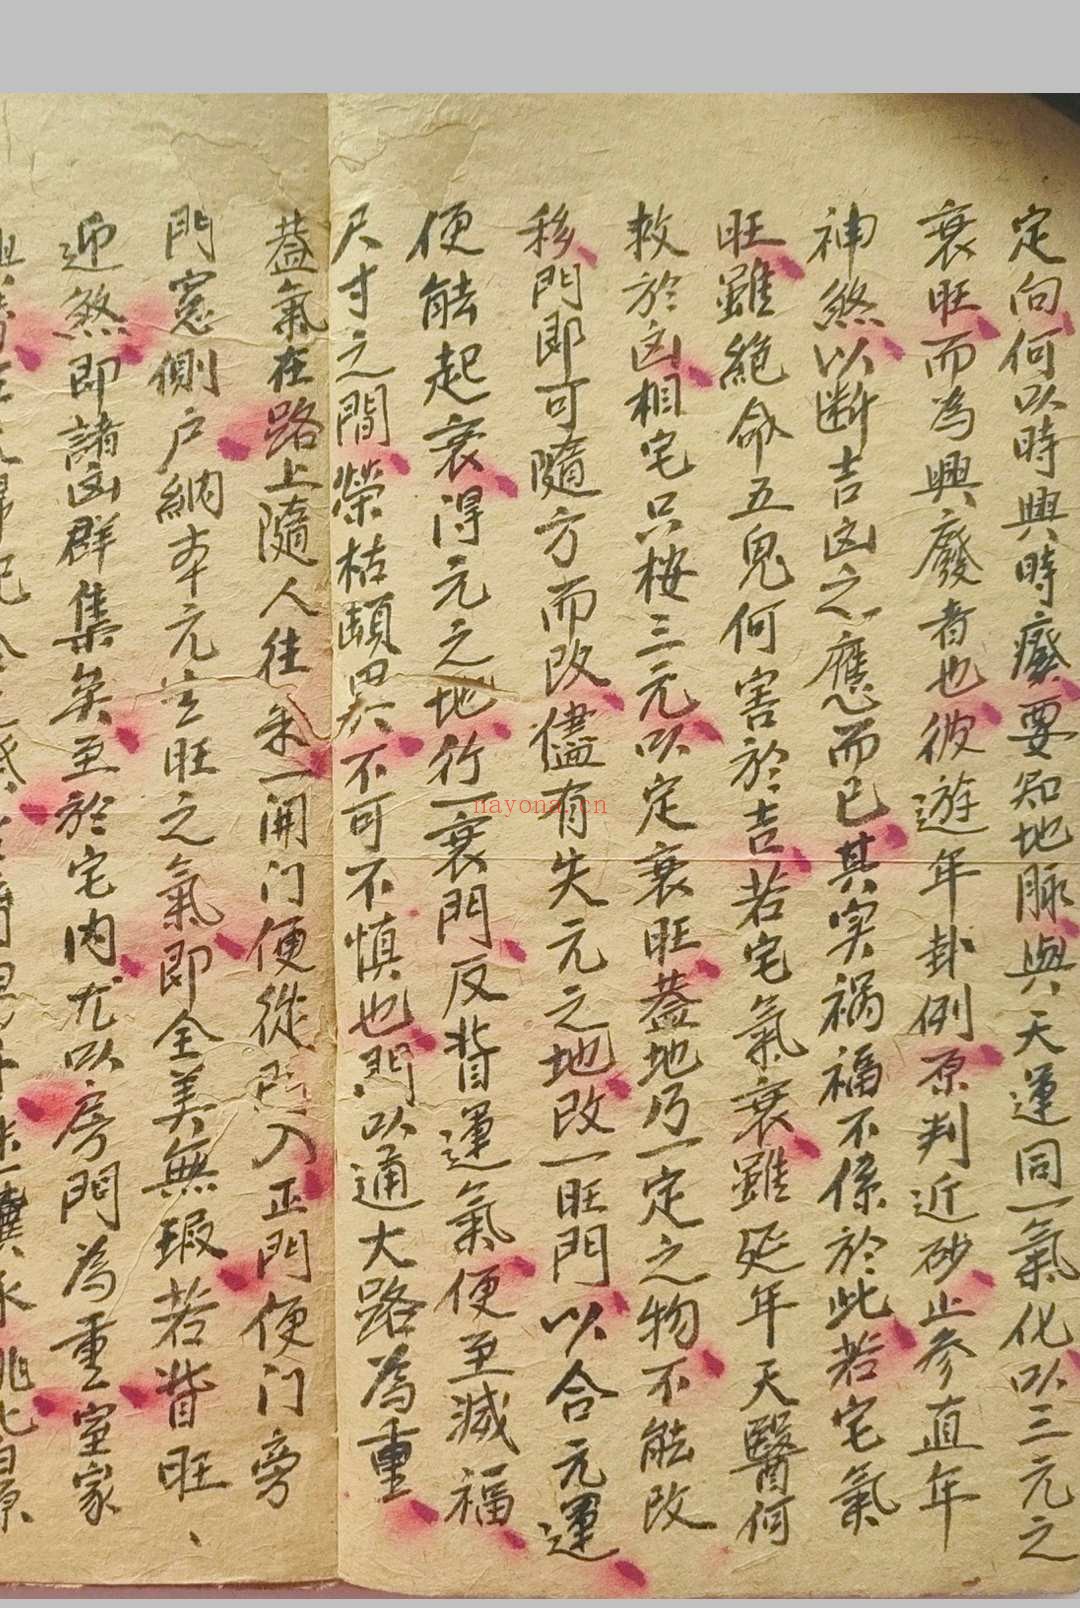 定向何以時興時癈要知地脈與天運同一氣化以三元之
衰旺而為興廢者也彼遊年卦例原判近砂止参直年
神煞以断吉凶之應而已其实禍福不係於此若宅氣
旺雖絕命五鬼何害於吉若宅氣衰雖延年天醫何
救於凶相宅只按三元以定衰旺蓋地乃一定之物不能改
移門即可隨方而改儘有失元之地改一旺門以合元運
便能起衰得元之地行一衰門反背運氣便至減福
尺寸之間榮枯頓異不可不慎也門以通大路為重
蓋氣在路上隨人往来一開门便從門入正門便门旁
門窓側户納本元生旺之氣即全美無瑕若背旺、
迎煞即諸凶群集矣至於宅内尤以房門為重室家
nayona.cn